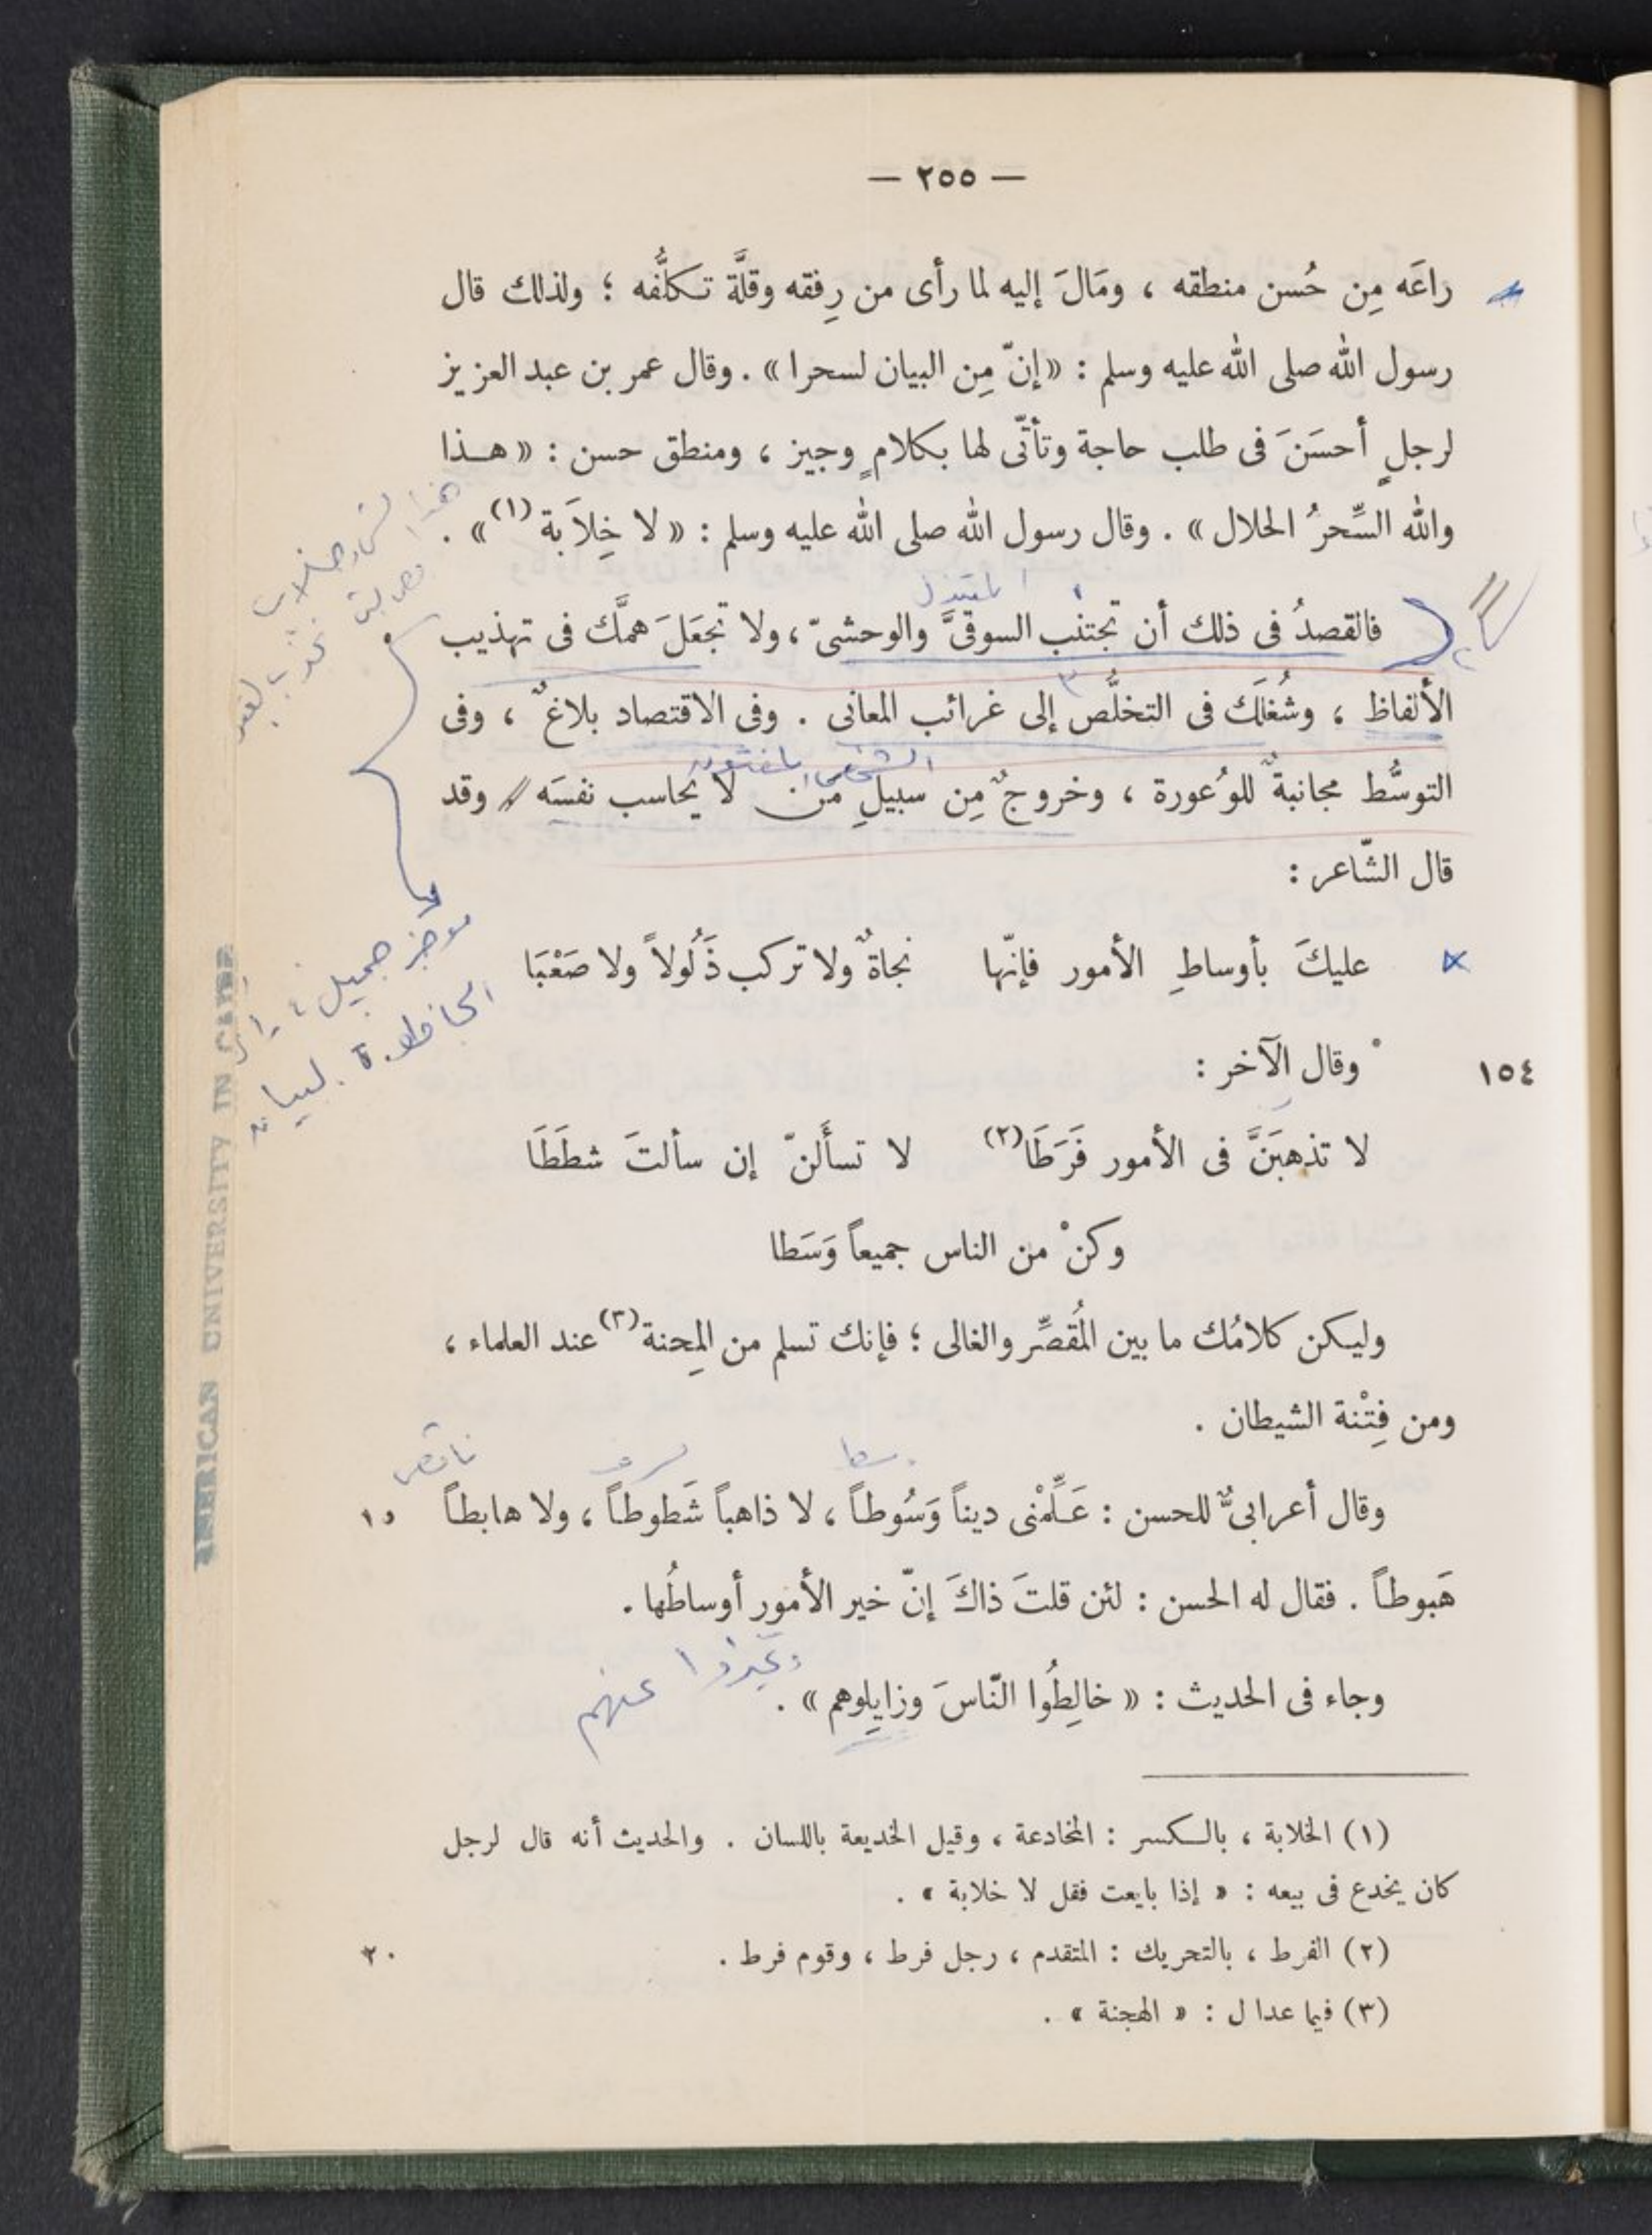 — ٢٥٥ —
راعَه مِن حُسن منطقه ، ومَالَ إليه لما رأى من رِفقه وقلَّة تكلُّفه ؛ ولذلك قال
رسول الله صلى الله عليه وسلم : «إنّ مِن البيان لسحرا» . وقال عمر بن عبد العزيز
لرجلٍ أحسَنَ فى طلب حاجة وتأتّى لها بكلامٍ وجيز ، ومنطق حسن : « هـذا
والله السِّحرُ الحلال » . وقال رسول الله صلى الله عليه وسلم : « لا خِلاَبة (١) » .
المبتذل
فالقصدُ فى ذلك أن تجتنب السوقىَّ والوحشىّ ، ولا تجعَلَ همَّك فى تهذيب
الألفاظ ، وشُغلَك فى التخلُّص إلى غرائب المعانى . وفى الاقتصاد بلاغٌ ، وفى
التوسُّط مجانبةٌ للوُعورة ، وخروجٌ مِن سبيلِ من لا يحاسب نفسَه // وقد
قال الشّاعر :
موجز جميل
عليكَ بأوساطِ الأمور فإنّها نجاةٌ ولا تركب ذَلُولاً ولا صَعْبَا
١٥٤ ° وقال الآخر :
لا تذهبَنَّ فى الأمور فَرَطَا(٢) لا تسأَلنّ إن سألتَ شطَطَا
وكنْ من الناس جميعاً وَسَطا
وليكن كلامُك ما بين المُقصِّر والغالى ؛ فإنك تسلم من المِحنة(٣) عند العلماء ،
ومن فِتْنة الشيطان .
ناقص
وقال أعرابىٌّ للحسن : عَلِّمْنى ديناً وَسُوطاً ، لا ذاهباً شَطوطاً ، ولا هابطاً ١٥
هَبوطاً . فقال له الحسن : لئن قلتَ ذاكَ إنّ خير الأمور أوساطُها .
عنهم
وجاء فى الحديث : « خالِطُوا النّاسَ وزايِلوهم » .
(١) الخلابة ، بالكسر : المخادعة ، وقيل الخديعة باللسان . والحديث أنه قال لرجل
كان يخدع فى بيعه : « إذا بايعت فقل لا خلابة » .
(٢) الفرط ، بالتحريك : المتقدم ، رجل فرط ، وقوم فرط . ٢٠
(٣) فيما عدا ل : « الهجنة » .
AMERICAN UNIVERSITY IN CAIRO